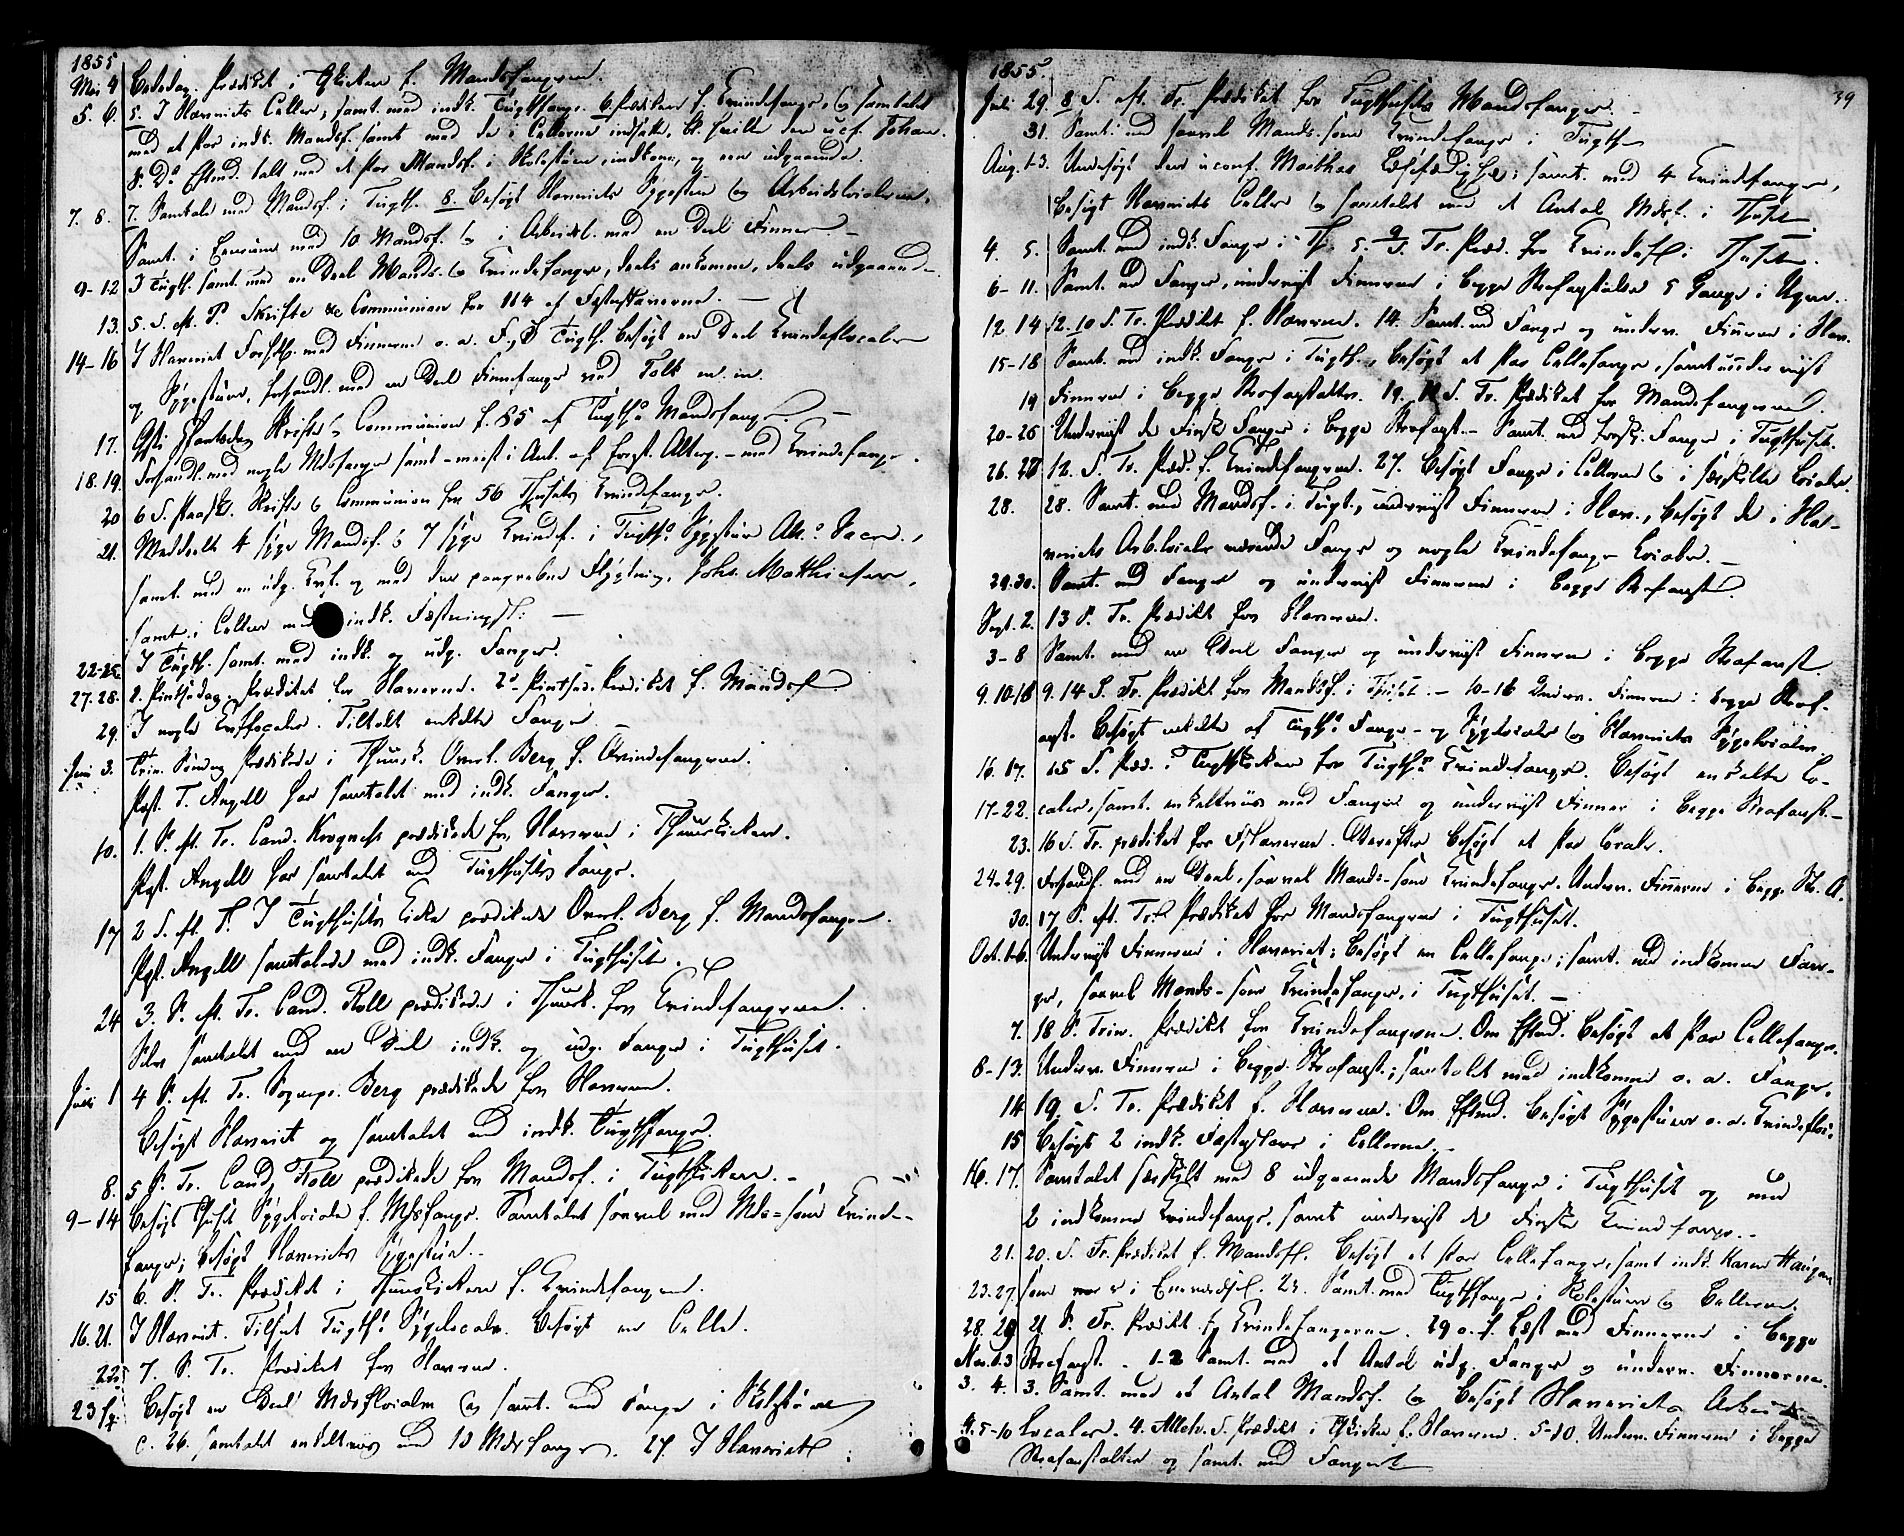 1855
Mai 4 Bededag. Prædiket i Thkirken f. Mandsfangerne.
5. 6. 5. I Slaveriets Celler, samt. med indk. Tugthfange. 6. Prædiken f. Qvindefange, og samtalet
med et Par indk. Mandsf. samt med de i Cellerne indsatte,
S. D. Eftmd. talt med et Par Mandsf. i Skolestuen, indkomne, og een udgaaende.
7. 8. 7. Samtale med Mandsf. i Tugth. 8. Besøgt Slaveriets Sygestue og Arbeidslocalerne,
Samt. i med 10 Mandsf. og i Arbeidsl. med en Deel Finner. –
9-12 I Tugth. samt. med en Deel Mands- og Qvindefanger, deels ankomne, deels udgaaende
13. 5. S. eft. P. Skrifte & Communion for 114 af Fæstnslaverne. –
14-16 I Slaveriet Forhdl. med Finnerne o. a. F., I Tugth. besøgt en Deel Qvindeflocaler
og Sygestuer, forhandl. med en Deel Finnefanger ved Tolk m. m.
17. Chri Himfartsdag Skrifte & Communion f. 85 af Tugth. Mandsfanger. –
18. 19. Forhandl. med nogle Mdsfanger samt – meest i Anl. af forst. Alterg. – med Qvindefange.
20 6 S. Paaske. Skrifte & Communion for 56 Thusets Qvindefange.
21. Meddeelt 4 syge Mandsf. & 7 syge Qvindf. i Tugth. Sygestuer Alt. Sacr.,
samt. med en udg. og med den paagrebne Flygtning, Johs. Matthiesen,
samt. i Celler med indk. Fæstningsl: –
22-25 I Tugth. samt. med indk. og udg. Fanger.
27. 28. 1. Pintsedag. Prædiket for Slaverne. 2. Pintsed. Prædiket f. Mandsf.
29. I nogle Tiltalt enkelte Fanger. –
Juni 3. Trin. Søndag Prædikede i Thusk. Overl. Berg f. Qvindefangerne.
Past. T. Angell har samtalet med indk. Fanger.
10. 1. S. eft. Tr. Cand. Krogness prædikede for Slaverne i Thuuskirken.
Past. Angell har samtalet med Tugthusets Fange.
17 2 S. eft. T. I Tugthusets Kirke prædikede Overl. Berg f. Mandsfangerne.
Past. Angell samtalede med indk. Fanger i Tugthuset.
24 3. S. eft. Tr. Cand. Roll prædikede i Thuusk. for Qvindefangerne.
samtalet med en Deel indk. og udg. Fanger i Tugthuset.
Juli 1 4 S. eft. Tr. Sognepr. Berg prædikede for Slaverne.
Besøgt Slaveriet og samtalet med indk. Tugthfanger.
8. 5 S. Tr. Cand. Roll prædikede for Mandsf. i Tugthkirken. –
9-14 Besøgt Thuset Sygelocaler f. Mdsfange. Samtalet saavel med Mds- som Qvinde-
fanger; besøgt Slaveriets Sygestue. –
15 6. S. Tr. Prædiket i Thuuskirken f. Qvindefangerne.
16. 21. I Slaveriet. Tilseet Tugth. Sygelocaler. Besøgt en Celle.
22. 7. S. Tr. Prædiket for Slaverne.
23 Besøgt en Deel Mdsflocaler og samt. med Fange i Skolestuen
26. samtalet enkeltviis med 10 Mdsfanger. 27. I Slaveriet

1855. 39
Juli 29. 8. S. eft. Tr. Prædiket for Tugthusets Mandsfanger. –
31. Samt. med saavel Mands- som Qvindefanger i Tugth.
Aug. 1-3. Undersøgt den uconf. Marthas Læsefærdighed; samt. med 4 Qvindefanger,
besøgt Slaveriets Celler og samtalet med et Antal Mdsf. i Thuset.
4. 5. Samt. med indk. Fange i Th. 5. 9 S. Tr. Præd. for Qvindef. i Thuset.
6-11. Samt. med Fanger, underviist Finnerne i begge Strafanstalter 5 Gange i Ugen.
12. 14 12. 10 S. Tr. Prædiket f. Slaverne. 14. Samt. med Fange og underv. Finnerne i Slav.
15-18 Samt. med indk. Fange i Tugth., besøgt et Par Cellefange, samt underviist
19 Finnerne i begge Strafanstalter. 19. 11 S. Tr. Prædiket for Mandsfangerne.
20-25 Underviist de Finske Fanger i begge Strafanst. – Samt. med forsk. Fanger i Tugthuset.
26. 27 12. S. Tr. Præd. f. Qvindefangerne. 27. Besøgt Fanger i Cellerne og i særskilte Localer.
28. 28. Samt. med Mandsf. i Tugt., underviist Finnerne i Slav., besøgt de i Sla-
veriets Arb.localer værende Fange og nogle Qvindefange Localer. –
29. 30. Samt. med Fanger og underviist Finnerne i begge Strafanst.
Sept. 2. 13 S. Tr. Prædiket for Slaverne.
3-8 Samt. med en Deel Fanger og underviist Finnerne i begge Strafanst.
9. 10-16 9. 14 S. Tr. Prædiket for Mandsf. i Thuset. – 10-16 Underv. Finnerne i begge Straf-
anst. Besøgt enkelte af Tugth. Fange- og Sygelocaler og Slaveriets Sygelocaler.
16. 17. 15 S. Præd. i Tugthkirken for Tugth. Qvindefange. Besøgt enkelte Lo-
17-22. caler, samt. enkeltviis med Fanger og underviist Finner i begge Strafanst. –
23. 16 S. Tr. prædiket for Slaverne. Derefter besøgt et Par Locale.
24-29. Forhandl. med en Deel, saavel Mands- som Qvindefange. Underv. Finnerne i begge St. A.
30. 17 S. eft. Tr. Prædiket for Mandsfangerne i Tugthuset.
Oct. 1-6. Underviist Finnerne i Slaveriet; besøgt en Cellefange; samt. med indkomne Fan-
ger, saavel Mands- som Qvindefanger, i Tugthuset. –
7. 18 S. Trin. Prædiket for Qvindefangerne. Om Eftmd. besøgt et Par Cellefange.
8-13. Underv. Finnerne i begge Strafanst.; samtalet med indkomne o. a. Fanger.
14 19. S. Tr. Prædiket f. Slaverne. Om Eftmd. besøgt Sygestuer o. a. Qvindefloc.
15 Besøgt 2 indk. Fæstnslaver i Cellerne. –
16. 17. Samtalet særskilt med 8 udgaaende Mandsfanger i Tugthuset og med
2 indkomne Qvindefange, samt underviist de Finske Qvindefange. –
21. 20. S. Tr. Prædiket f. Mandsf. Besøgt et Par Cellefange, samt indk. Karen Haugan
23-27. som var i Eenrumsf. 23. Samt. med Tugthfange i Skolestuen og Cellerne.
28. 29 21 S. Tr. Prædiket for Qvindefangerne. 29 o. f. Læst med Finnerne i begge
Nov. 1-3 Strafanst. – 1-2 Samt. med et Antal udg. Fanger og underv. Finnerne.
3. 4. 3. Samt. med et Antal Mandsf. og besøgt Slaveriets Arbeids
4. 5-10 Localer. 4. Alleh. S. Prædiket i Thkirken f. Slaverne. 5-10. Underv. Finnerne i begge
Strafanstalter og samt. med Fanger.